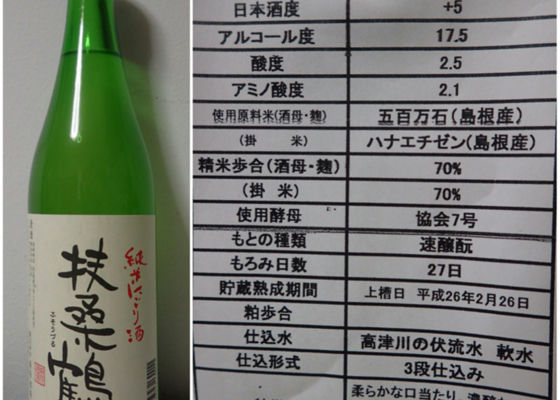 純米にごり酒
扶桑鶴
ふそうづる
日本酒度 +5
アルコール度 17.5
酸度 2.5
アミノ酸度 2.1
使用原料米(酒母・麹) 五百万石(島根産)
(掛 米) ハナエチゼン(島根産)
精米歩合(酒母・麹) 70%
(掛 米) 70%
使用酵母 協会7号
もとの種類 速醸酛
もろみ日数 27日
貯蔵熟成期間 上槽日 平成26年2月26日
粕歩合
仕込水 高津川の伏流水 軟水
仕込形式 3段仕込み
柔らかな口当たり、濃醇